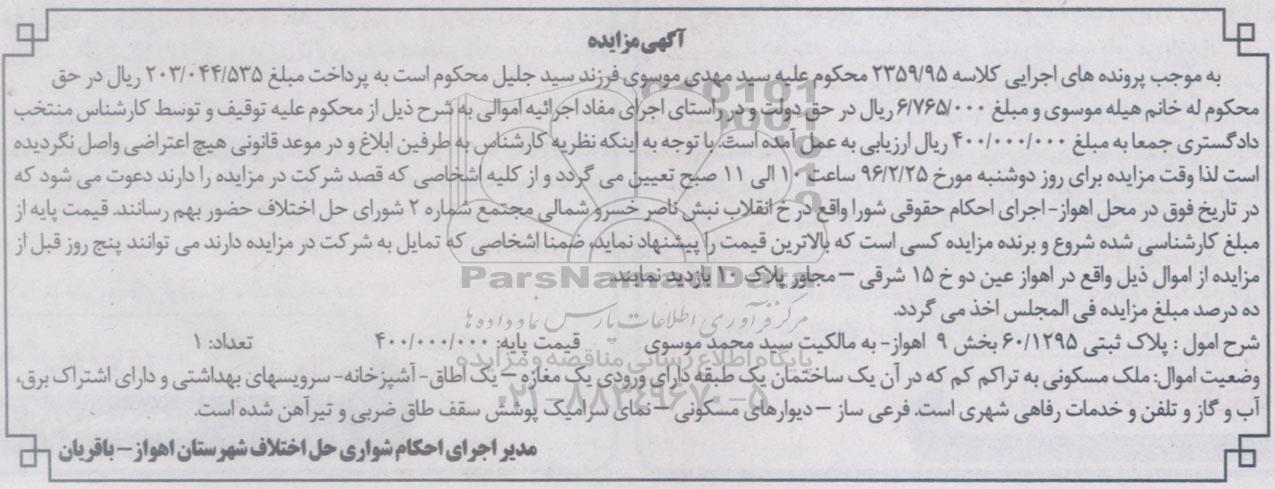 آگهی مزایده
به موجب پرونده های اجرایی کلاسه ۲۳۵۹/۹۵ محکوم علیه سید مهدی موسوی فرزند سید جلیل محکوم است به پرداخت مبلغ ۲۰۳/۰۴۴/۵۳۵ ریال در حق
محکوم له خانم هیله موسوی و مبلغ ۶/۷۶۵/۰۰۰ ریال در حق دولت و در راستای اجرای مفاد اجرائیه اموالی به شرح ذیل از محکوم علیه توقیف و توسط کارشناس منتخب
دادگستری جمعا به مبلغ ۴۰۰/۰۰۰/۰۰۰ ریال ارزیابی به عمل آمده است. با توجه به اینکه نظریه کارشناس به طرفین ابلاغ و در موعد قانونی هیچ اعتراضی واصل نگردیده
است لذا وقت مزایده برای روز دوشنبه مورخ ۹۶/۲/۲۵ ساعت ۱۰ الی ۱۱ صبح تعیین می گردد و از کلیه اشخاصی که قصد شرکت در مزایده را دارند دعوت می شود که
در تاریخ فوق در محل اهواز- اجرای احکام حقوقی شورا واقع در خ انقلاب نبش ناصر خسرو شمالی مجتمع شماره ۲ شورای حل اختلاف حضور بهم رسانند. قیمت پایه از
مبلغ کارشناسی شده شروع و برنده مزایده کسی است که بالاترین قیمت را پیشنهاد نماید، ضمنا اشخاصی که تمایل به شرکت در مزایده دارند می توانند پنج روز قبل از
مزایده از اموال ذیل واقع در اهواز عین دو خ ۱۵ شرقی – مجاور پلاک ۱۰ بازدید نمایند.
ParsNamadData
ده درصد مبلغ مزایده فی المجلس اخذ می گردد.
مرکز فرآوری اطلاعات پارس نماد داده ها
شرح امول : پلاک ثبتی ۶۰/۱۲۹۵ بخش ۹ اهواز- به مالکیت سید محمد موسوی قیمت پایه: ۴۰۰/۰۰۰/۰۰۰ تعداد: ۱
پایگاه اطلاع رسانی مناقصه و مزایده
وضعیت اموال: ملک مسکونی به تراکم کم که در آن یک ساختمان یک طبقه دارای ورودی یک مغازه – یک اطاق- آشپزخانه- سرویسهای بهداشتی و دارای اشتراک برق،
۰۲۱-۸۸۳۴۹۶۷۰-۵
آب و گاز و تلفن و خدمات رفاهی شهری است. فرعی ساز – دیوارهای مسکونی – نمای سرامیک پوشش سقف طاق ضربی و تیرآهن شده است.
مدیر اجرای احکام شواری حل اختلاف شهرستان اهواز – باقریان